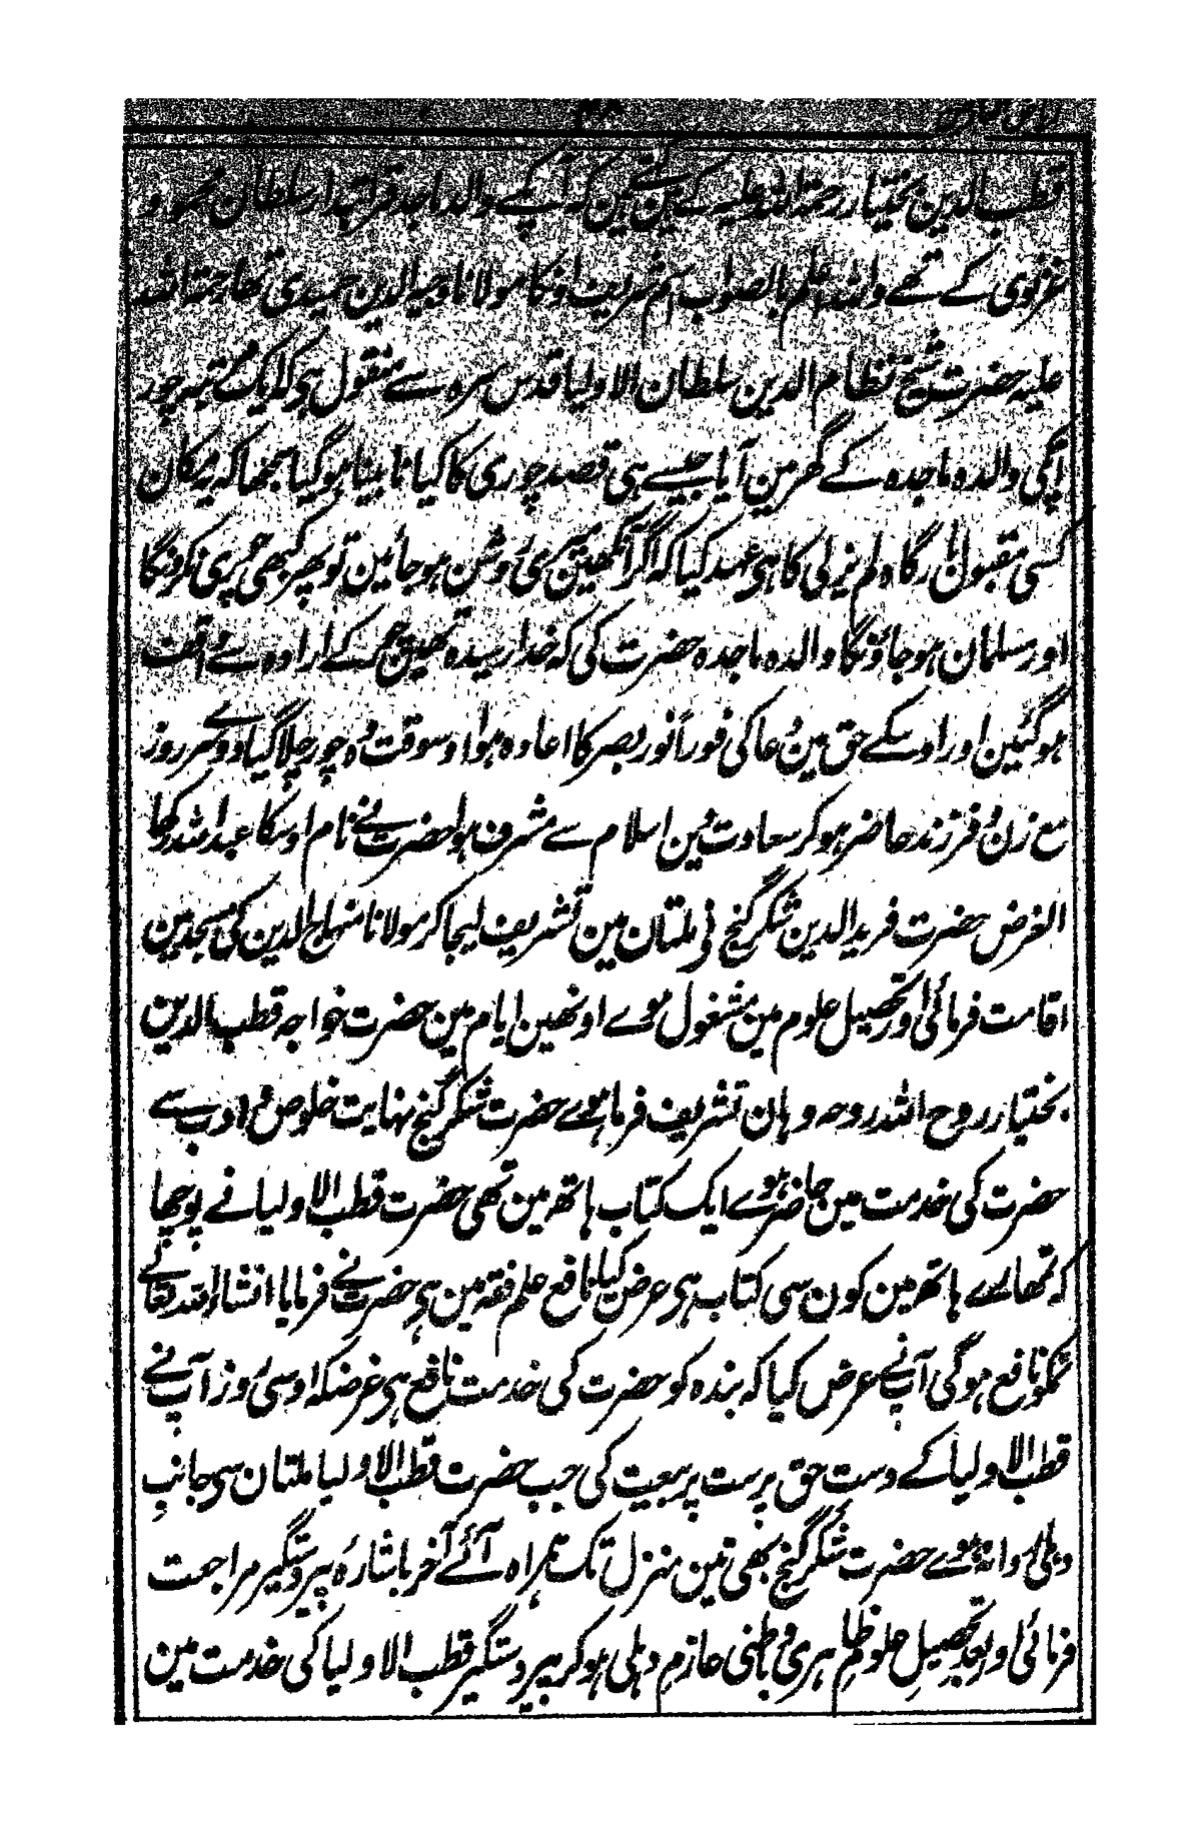 قطب الدین بختیار رحمۃ اللہ علیہ کے ہین کہتے ہین کہ آپکے والد ماجد قرابتدار سلطان محمود
غزنوی کے تھے واللہ اعلم بالصواب اسم شریف اونکا مولانا وجیہ الدین حمیدی تھا رحمۃ اللہ
علیہ حضرت شیخ نظام الدین سلطان الاولیا قدس سرہ سے منقول ہی کہ ایک مرتبہ چور
آپکی والدہ ماجدہ کے گھر مین آیا جیسے ہی قصد چوری کا کیا نابینا ہو گیا سمجھا کہ یہ مکان
کسی مقبول بارگاہ لم یزلی کا ہی عہد کیا کہ اگر آنکھین میری روشن ہو جائین تو پھر کبھی چوری نکرونگا
اور مسلمان ہو جاؤنگا والدہ ماجدہ حضرت کی کہ خدا رسیدہ تھین چور کے ارادہ سے واقف
ہو گئین اور اوسکے حق مین دعا کی فوراً نور بصر کا اعادہ ہوا اوسوقت وہ چور چلا گیا دوسرے روز
مع زن و فرزند حاضر ہوکر سعادت دین اسلام سے مشرف ہوا حضرت نے نام اوسکا عبد اللہ رکھا
الغرض حضرت فرید الدین شکر گنج نے ملتان مین تشریف لیجا کر مولانا منہاج الدین کی مسجد مین
اقامت فرمائی اور تحصیل علوم مین مشغول ہوے اونھین ایام مین حضرت خواجہ قطب الدین
بختیار روح اللہ روحہ وہان تشریف فرما ہوے حضرت شکر گنج نہایت خلوص و ادب سے
حضرت کی خدمت مین حاضر ہوے ایک کتاب ہاتھ مین تھی حضرت قطب الاولیا نے پوچھا
کہ تمھارے ہاتھ مین کون سی کتاب ہی عرض کیا نافع علم فقہ مین ہی حضرت نے فرمایا انشاء اللہ تعالے
تمکو نافع ہو گی آپنے عرض کیا کہ بندہ کو حضرت کی خدمت نافع ہی غرضکہ اوسی روز آپ نے
قطب الاولیا کے دست حق پرست پر بیعت کی جب حضرت قطب الاولیا ملتان سی جانبِ
دہلی روانہ ہوے حضرت شکر گنج بھی تین منزل تک ہمراہ آئے آخر باشارۂ پیر دستگیر مراجعت
فرمائی اور بعد تحصیلِ علوِم ظاہری و باطنی عازمِ دہلی ہوکر پیر دستگیر قطب الاولیا کی خدمت مین